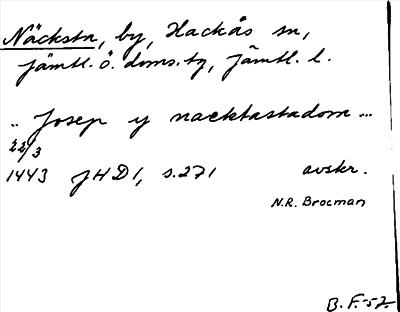 Näcksta, by, Hackås sn,
jämtl. ö. doms.tg, jämtl. l.
.. Josep y nacktastadom ...
22/3
1443 JHD1, s.271 avskr.
N.R. Brocman
B.F.-52.